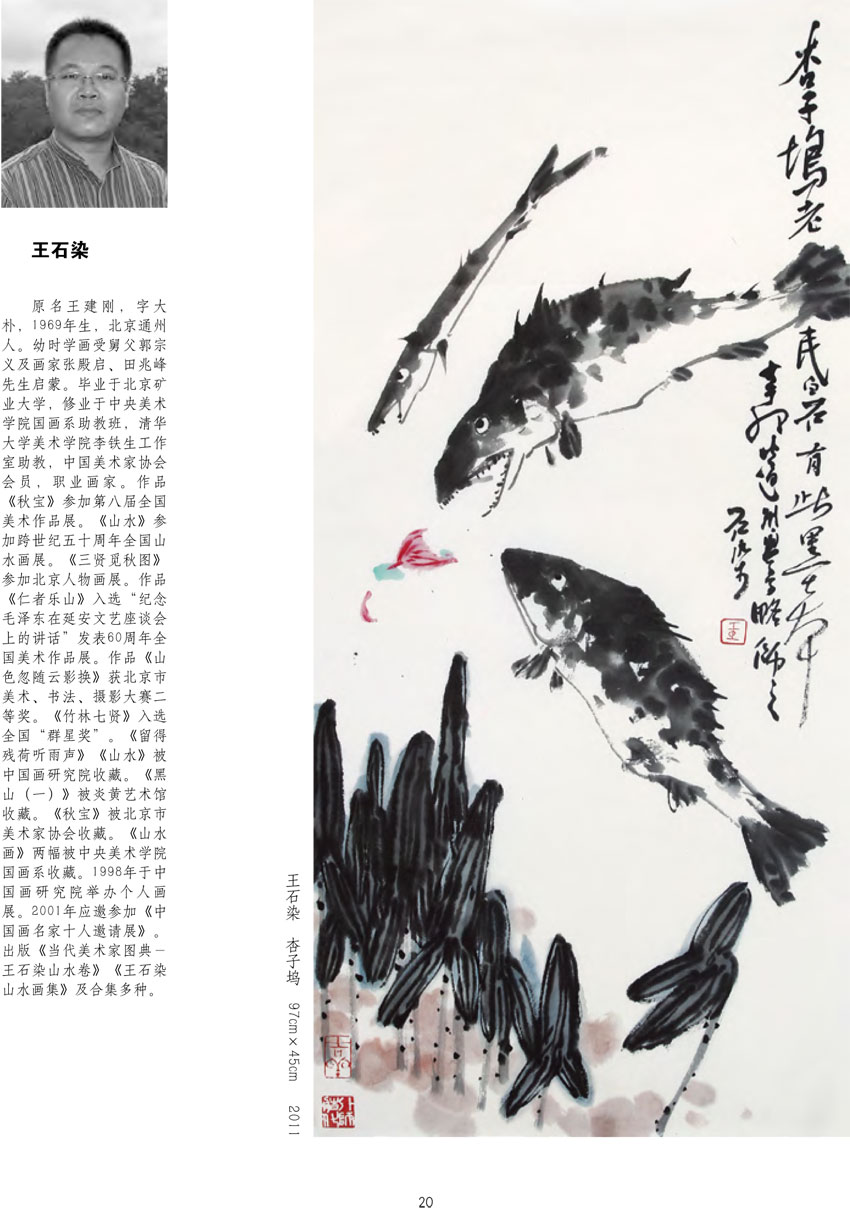 王石染
原名王建刚，字大
朴，1969年生，北京通州
人。幼时学画受舅父郭宗
义及画家张殿启、田兆峰
先生启蒙。毕业于北京矿
业大学，修业于中央美术
学院国画系助教班，清华
大学美术学院李铁生工作
室助教，中国美术家协会
会员，职业画家。作品
《秋宝》参加第八届全国
美术作品展。《山水》参
加跨世纪五十周年全国山
水画展。《三贤觅秋图》
参加北京人物画展。作品
《仁者乐山》入选“纪念
毛泽东在延安文艺座谈会
上的讲话”发表60周年全
国美术作品展。作品《山
色忽随云影换》获北京市
美术、书法、摄影大赛二
等奖。《竹林七贤》入选
全国“群星奖”。《留得
残荷听雨声》《山水》被
中国画研究院收藏。《黑
山（一）》被炎黄艺术馆
收藏。《秋宝》被北京市
美术家协会收藏。《山水
画》两幅被中央美术学院
国画系收藏。1998年于中
国画研究院举办个人画
展。2001年应邀参加《中
国画名家十人邀请展》。
出版《当代美术家图典－
王石染山水卷》《王石染
山水画集》及合集多种。
王石染 杏子坞 97cm×45cm 2011
杏子坞老
民
有此黑
辛卯
略师之
20